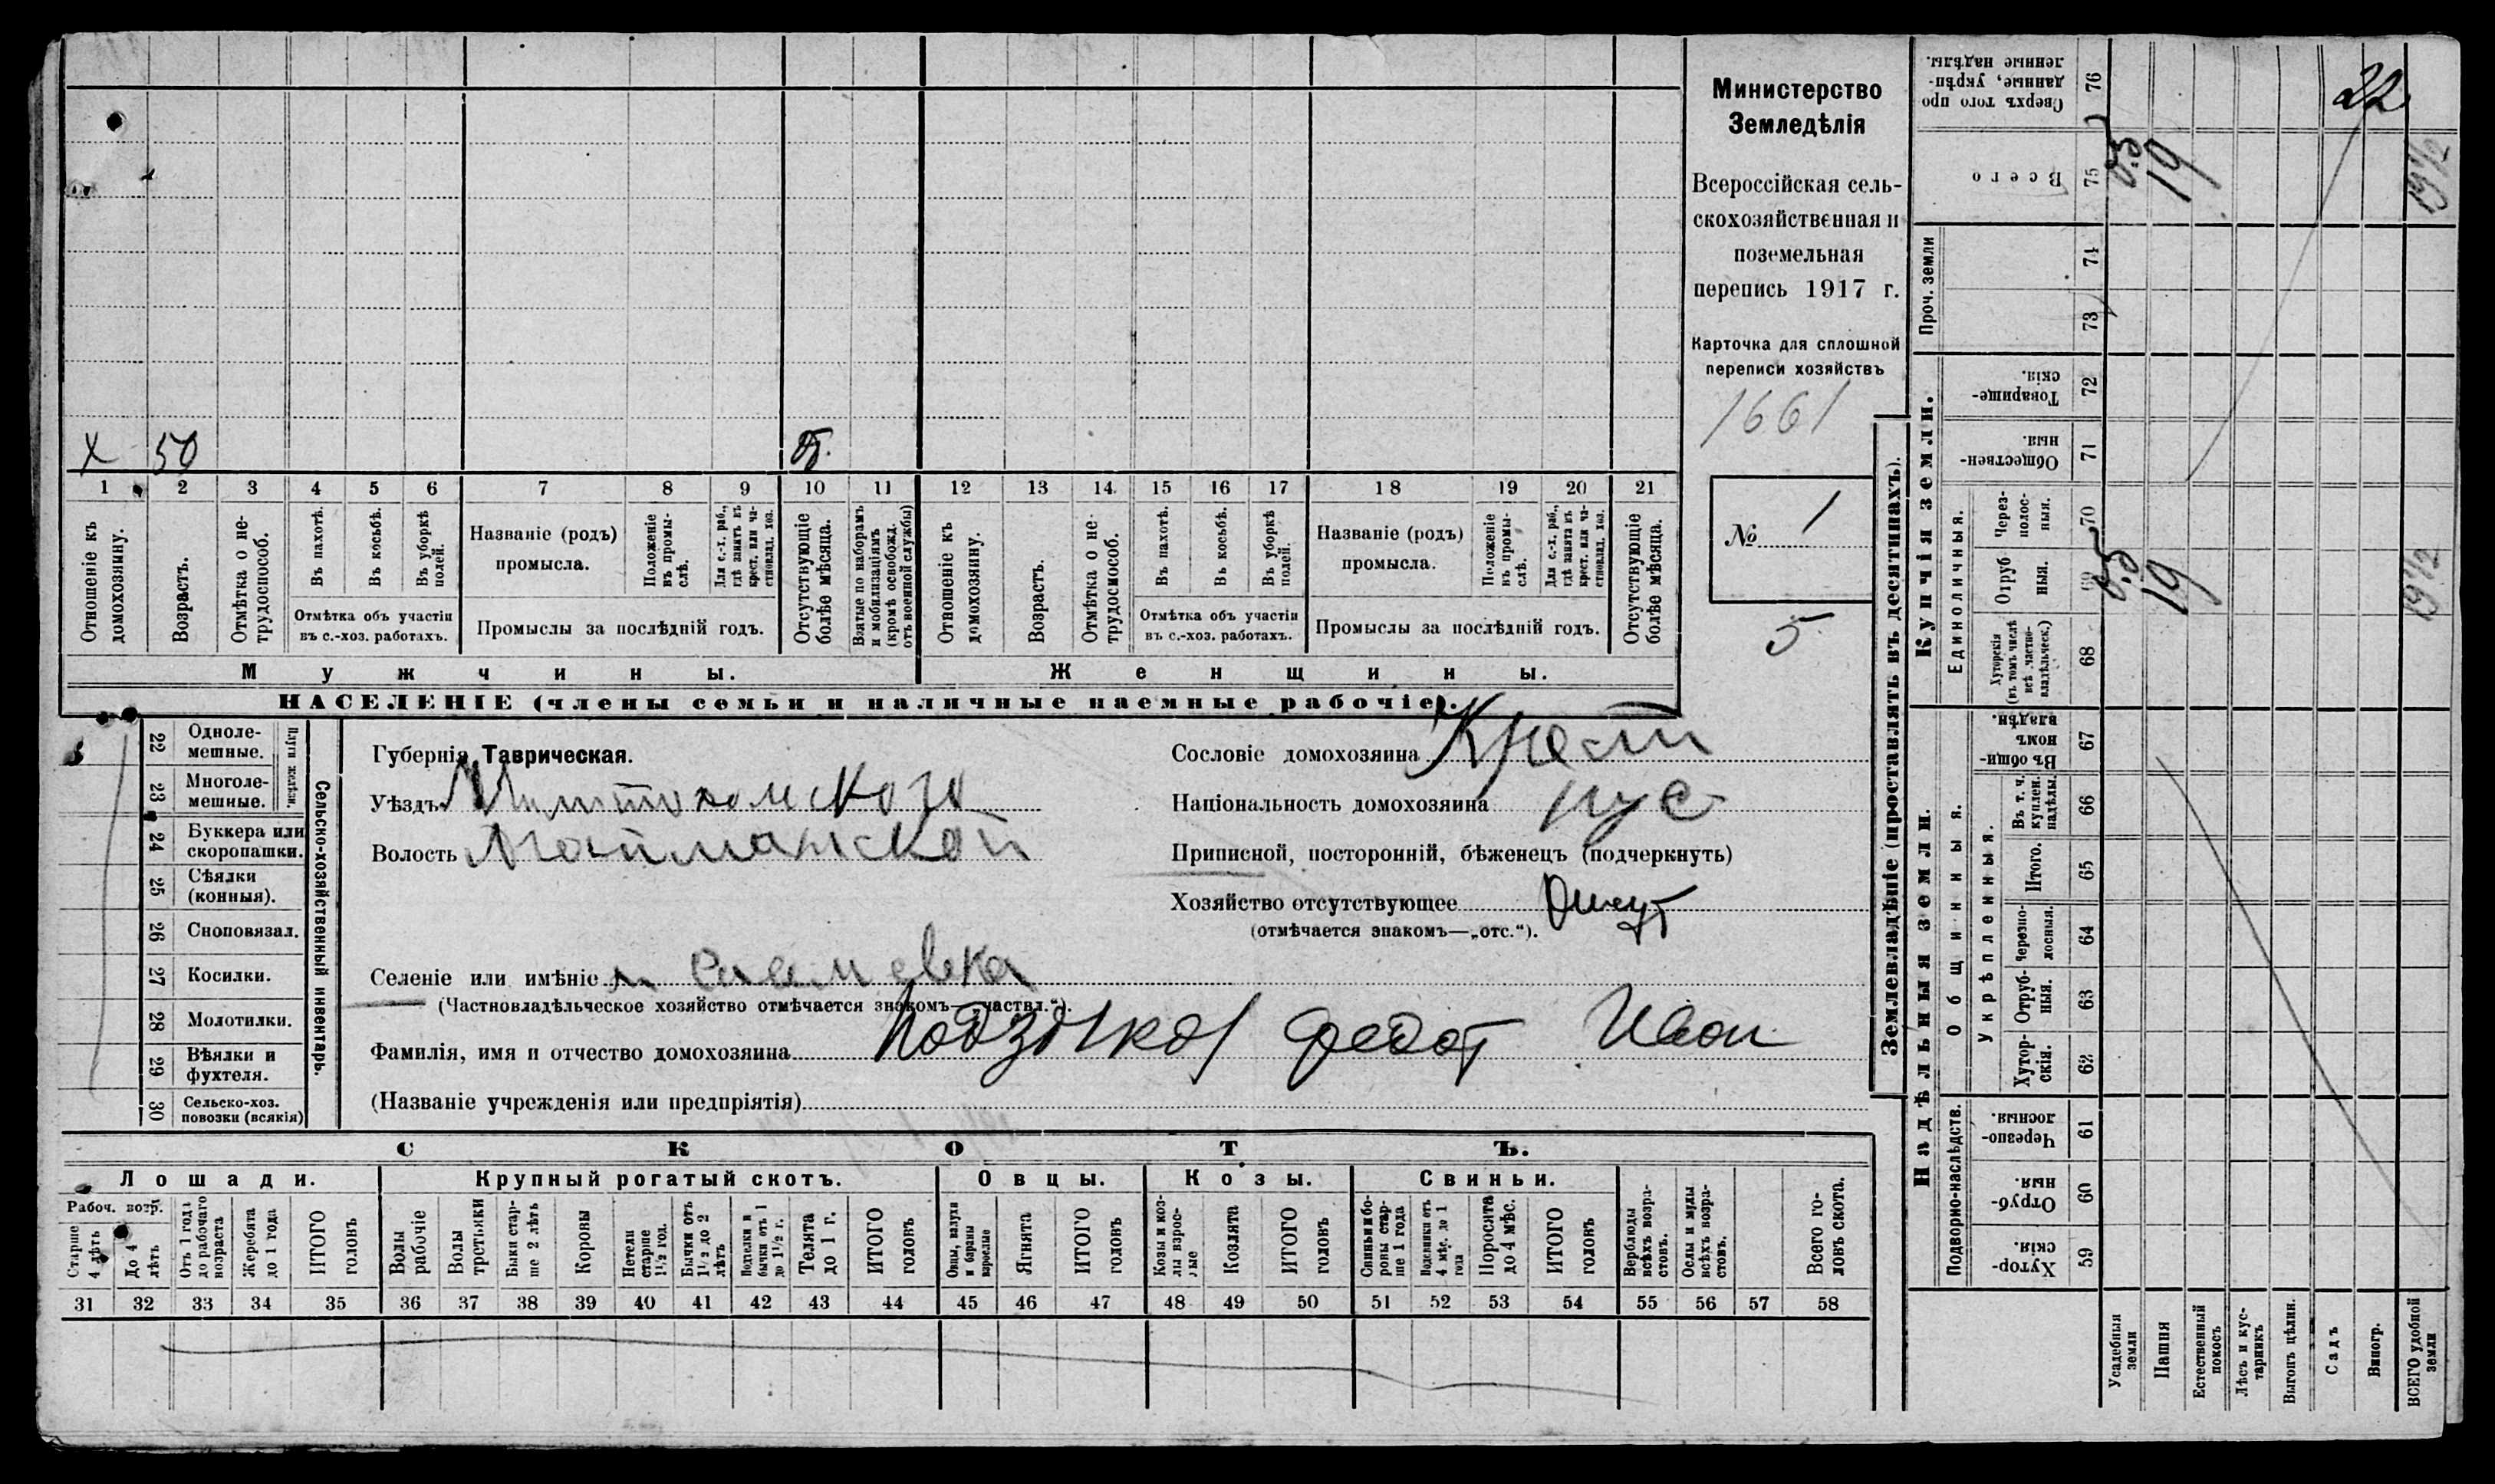 Министерство
Земледѣлія
Всероссійская сель-
скохозяйственная и
поземельная
перепись 1917 г.
Карточка для сплошной
переписи хозяйствъ
1661
№ 1
5
X 50
1 2 3 4 5 6 7 8 9 10 11 12 13 14 15 16 17 18 19 20 21
Отношеніе къ домохозяину.
Возрастъ.
Отмѣтка о не-трудоспособ.
Въ пахотѣ.
Въ косьбѣ.
Въ уборкѣ полей.
Отмѣтка объ участіи
въ с.-хоз. работахъ.
Названіе (родъ)
промысла.
Положеніе въ промы-слѣ.
Для с.-х. раб., гдѣ занятъ въ крест. или ча-стновлад. хоз.
Промыслы за послѣдній годъ.
Отсутствующіе болѣе мѣсяца.
Взятые по наборамъ и мобилизаціямъ (кромѣ освобожд. отъ военной службы)
Отношеніе къ домохозяину.
Возрастъ.
Отмѣтка о не-трудоспособ.
Въ пахотѣ.
Въ косьбѣ.
Въ уборкѣ полей.
Отмѣтка объ участіи
въ с.-хоз. работахъ.
Названіе (родъ)
промысла.
Положеніе въ промы-слѣ.
Для с.-х. раб., гдѣ занята въ крест. или ча-стновлад. хоз.
Промыслы за послѣдній годъ.
Отсутствующіе болѣе мѣсяца.
Мужчины. Женщины.
НАСЕЛЕНІЕ (члены семьи и наличные наемные рабочіе).
22 Одноле-мешные.
23 Многоле-мешные.
Плуги желѣзн.
24 Буккера или скоропашки.
25 Сѣялки (конныя).
26 Сноповязал.
27 Косилки.
28 Молотилки.
29 Вѣялки и фухтеля.
30 Сельско-хоз. повозки (всякія)
Сельско-хозяйственный инвентарь.
Губернія Таврическая.
Уѣздъ
Волость
Селеніе или имѣніе
(Частновладѣльческое хозяйство отмѣчается знакомъ—„частвл.“).
Фамилія, имя и отчество домохозяина Федот Иван
(Названіе учрежденія или предпріятія)
Сословіе домохозяина Крест
Національность домохозяина рус
Приписной, посторонній, бѣженецъ (подчеркнуть)
Хозяйство отсутствующее
(отмѣчается знакомъ—„отс.“).
СКОТЪ.
Лошади. Крупный рогатый скотъ. Овцы. Козы. Свиньи.
Рабоч. возр.
Старше 4 лѣтъ
До 4 лѣтъ
Отъ 1 года до рабочаго возраста
Жеребята до 1 года
ИТОГО головъ
Волы рабочіе
Волы третьяки
Быки стар-ше 2 лѣтъ
Коровы
Нетели старше 1½ год.
Бычки отъ 1½ до 2 лѣтъ
Подтелки и бычки отъ 1 до 1½ г.
Телята до 1 г.
ИТОГО головъ
Овцы, валухи и бараны взрослые
Ягнята
ИТОГО головъ
Козы и коз-лы взрос-лые
Козлята
ИТОГО головъ
Свиньи и бо-ровы стар-ше 1 года
Подсвинки отъ 4 мѣс. до 1 года
Поросята до 4 мѣс.
ИТОГО головъ
Верблюды всѣхъ возра-стовъ.
Ослы и мулы всѣхъ возра-стовъ.
Всего го-ловъ скота.
31 32 33 34 35 36 37 38 39 40 41 42 43 44 45 46 47 48 49 50 51 52 53 54 55 56 57 58
Землевладѣніе (проставлять въ десятинахъ).
Купчія земли.
Надѣльныя земли.
Сверхъ того про данные, укрѣп-ленные надѣлы. 76
Всего 75
Проч. земли
74
73
Товарище-скія. 72
Обществен-ныя. 71
Единоличныя.
Через-полос-ныя. 70
Отруб-ныя. 69
Хуторскія (въ томъ числѣ всѣ частно-владѣльческ.) 68
Общинныя.
Въ общин-номъ владѣн. 67
Укрѣпленныя.
Въ т. ч. куплен. надѣлы. 66
Итого. 65
Черезпо-лосныя. 64
Отруб-ныя. 63
Хутор-скія. 62
Подворно-наслѣдств.
Черезпо-лосныя. 61
Отруб-ныя. 60
Хутор-скія. 59
Усадебныя земли
Пашня
Естественный покосъ
Лѣсъ и кус-тарникъ
Выгонъ цѣлин.
Садъ
Виногр.
ВСЕГО удобной земли
22
19
19½
19
19½